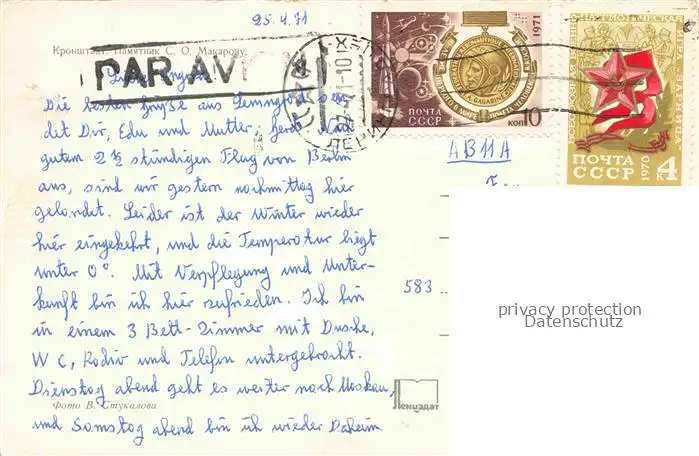 25.4.71
Кронштадт. Памятник С. О. Макарову.
PAR AVION
Die besten Grüße aus Leningrad sen-
det Dir, Edu und Mutter, Gerd. Nach
gutem 2½ stündigen Flug von Berlin
aus, sind wir gestern nachmittag hier
gelandet. Leider ist der Winter wieder
hier eingekehrt, und die Temperatur liegt
unter 0°. Mit Verpflegung und Unter-
kunft bin ich hier zufrieden. Ich bin
in einem 3 Bett-Zimmer mit Dusche,
WC, Radio und Telefon untergebracht.
Dienstag abend geht es weiter nach Moskau,
Фото В. Стукалова
und Samstag abend bin ich wieder Daheim.
1971
ПОЧТА
СССР
10
КОП
ПОЧТА
СССР
1970
4
К
АВИА
583
Лениздат
privacy protection
Datenschutz